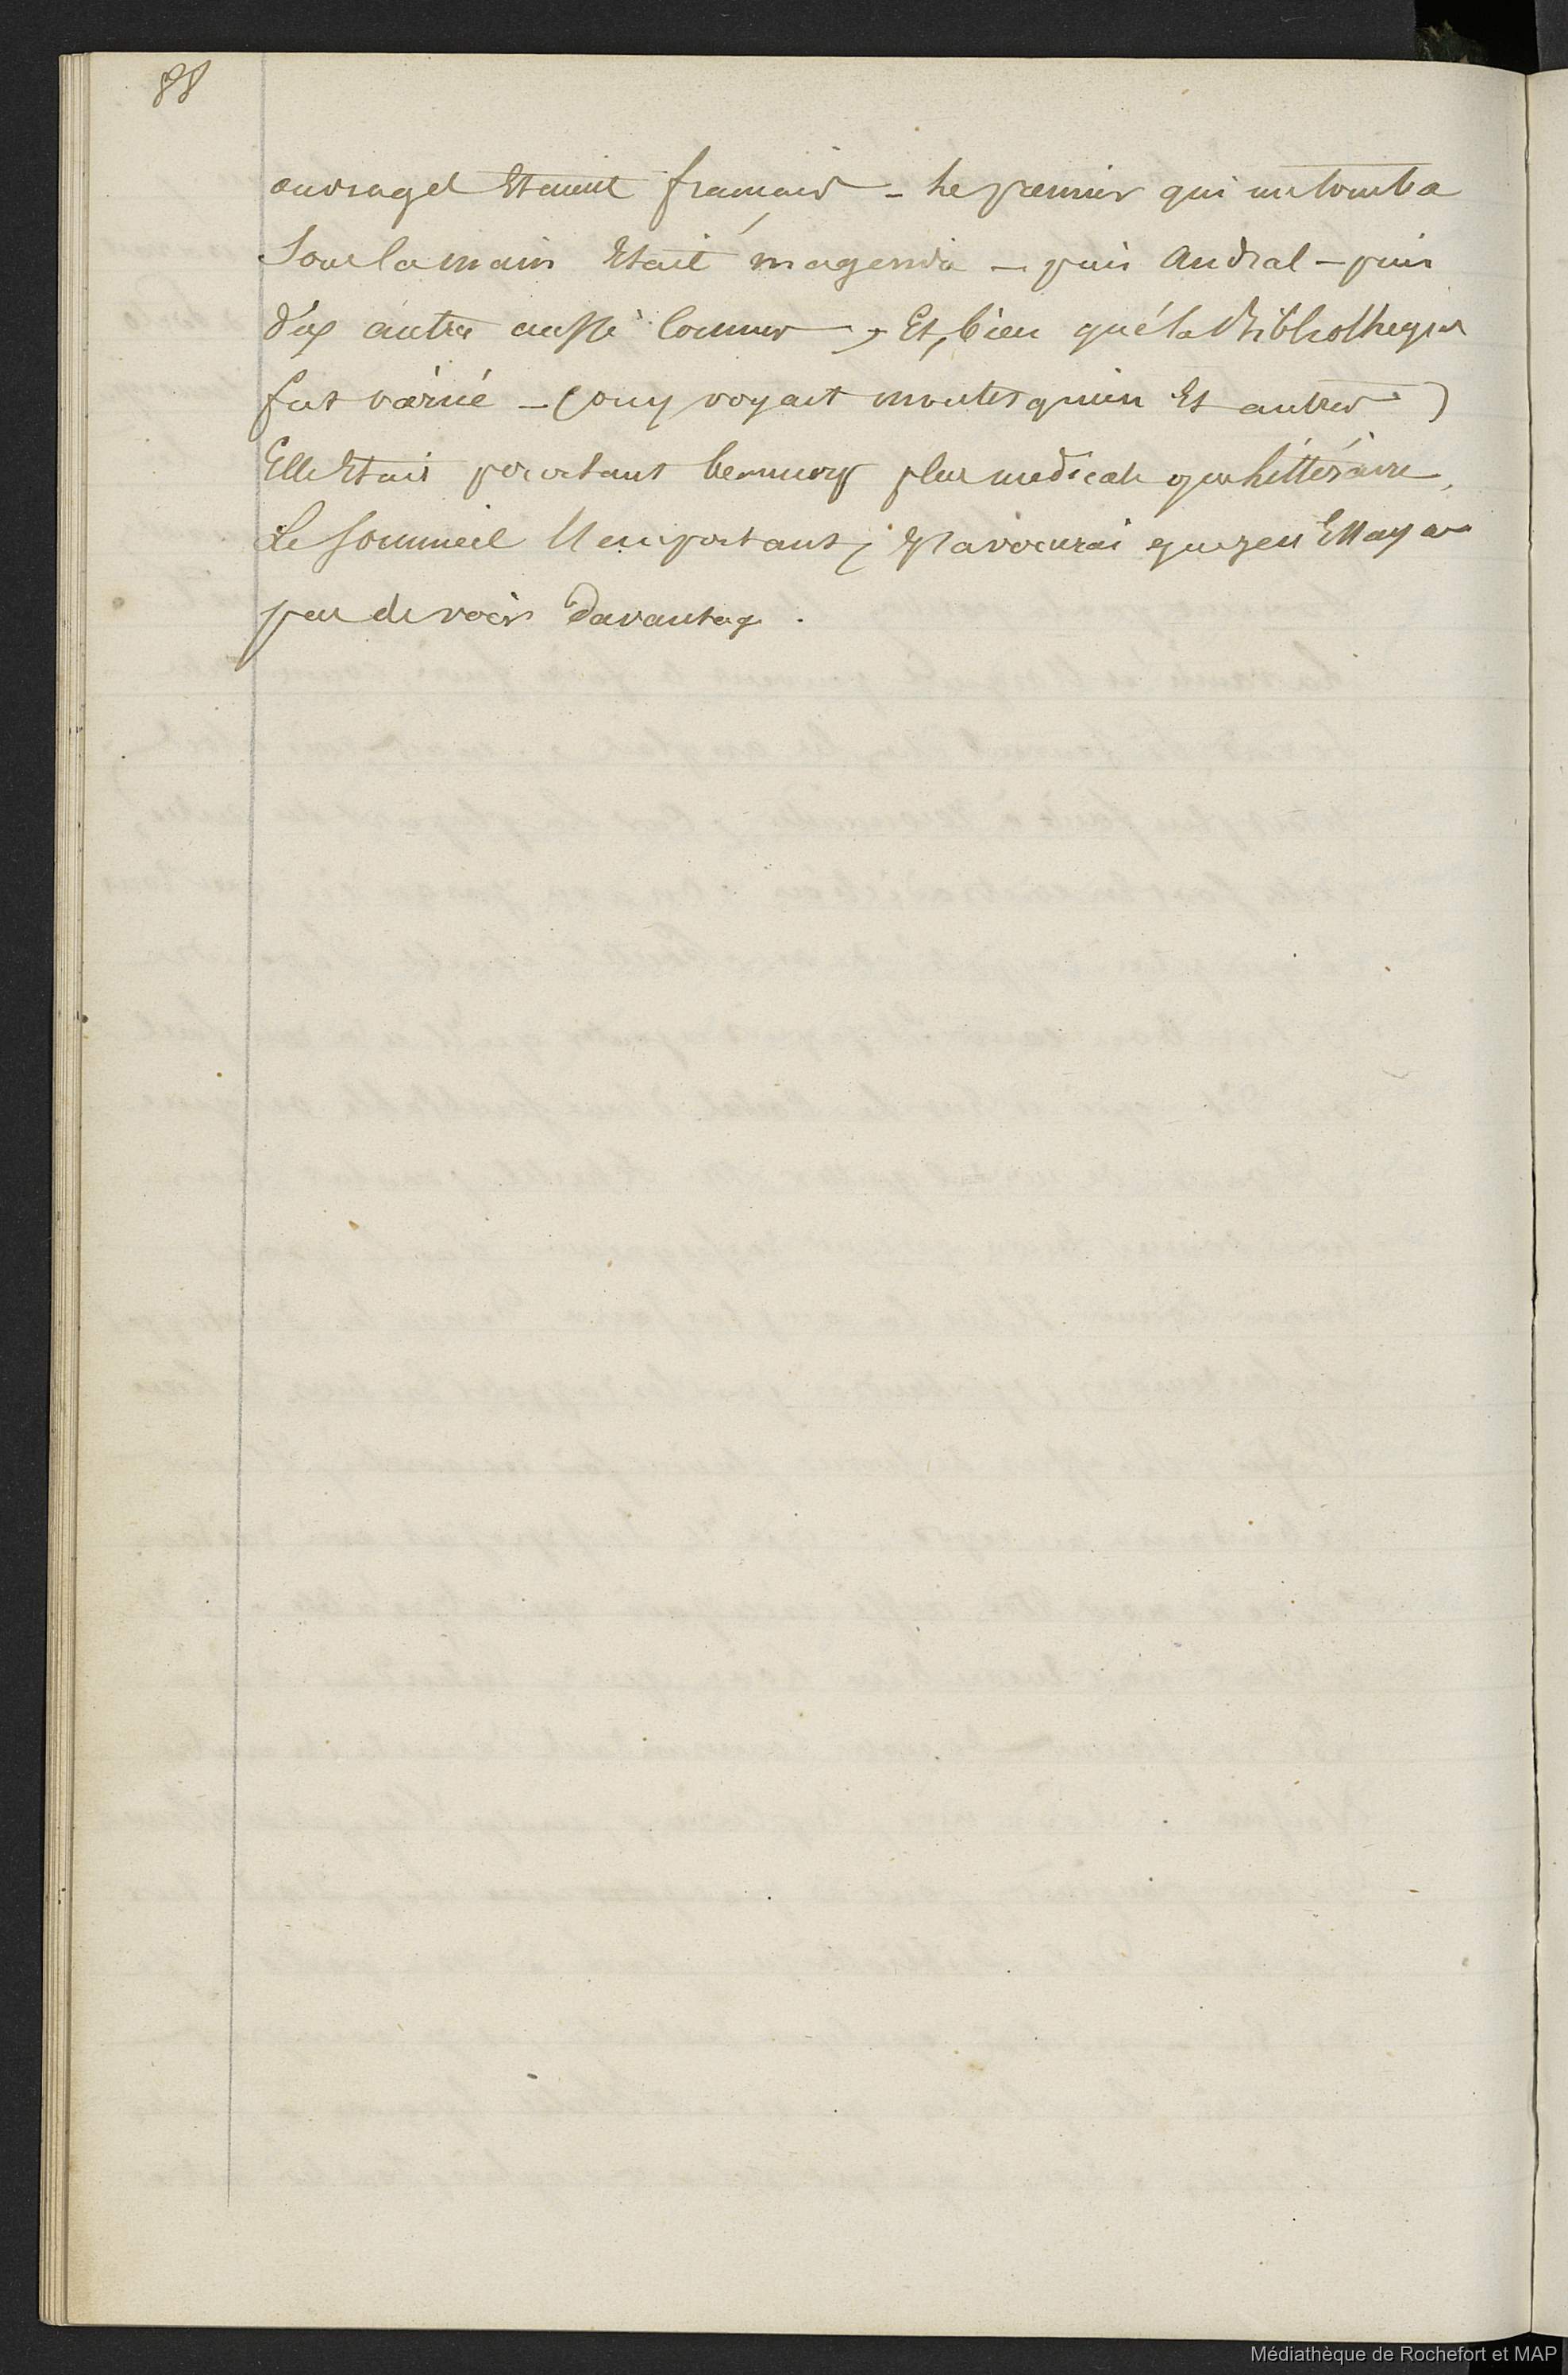 88
ouvrages Etaient français - Le premier qui me tomba
Sous la main Etait magendie - puis Andral - puis
d'autres aussi connus, Et, bien que la Bibliotheque
fut variée - (on y voyait montesquieu Et autres)
Elle Etait pourtant beaucoup plus medicale que littéraire,
Le Sommeil l'emportant, J'avouerai que j'en Essayai
peu de voir davantage.
Médiathèque de Rochefort et MAP